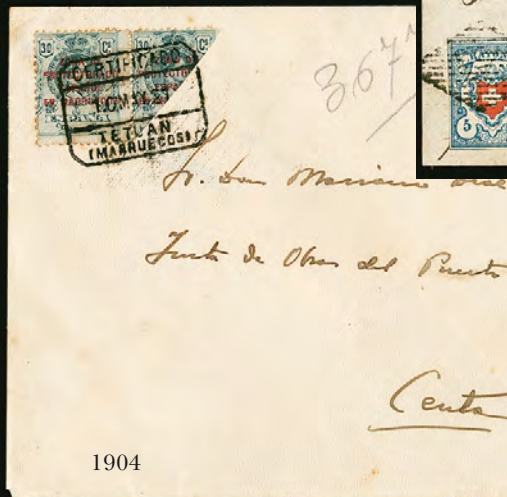 30 Cs 30 Cs
CERTIFICADO
TETUAN
(MARRUECOS)
367
5
Sr. Don Mariano
Junta de Obras del Puerto
Ceuta
1904